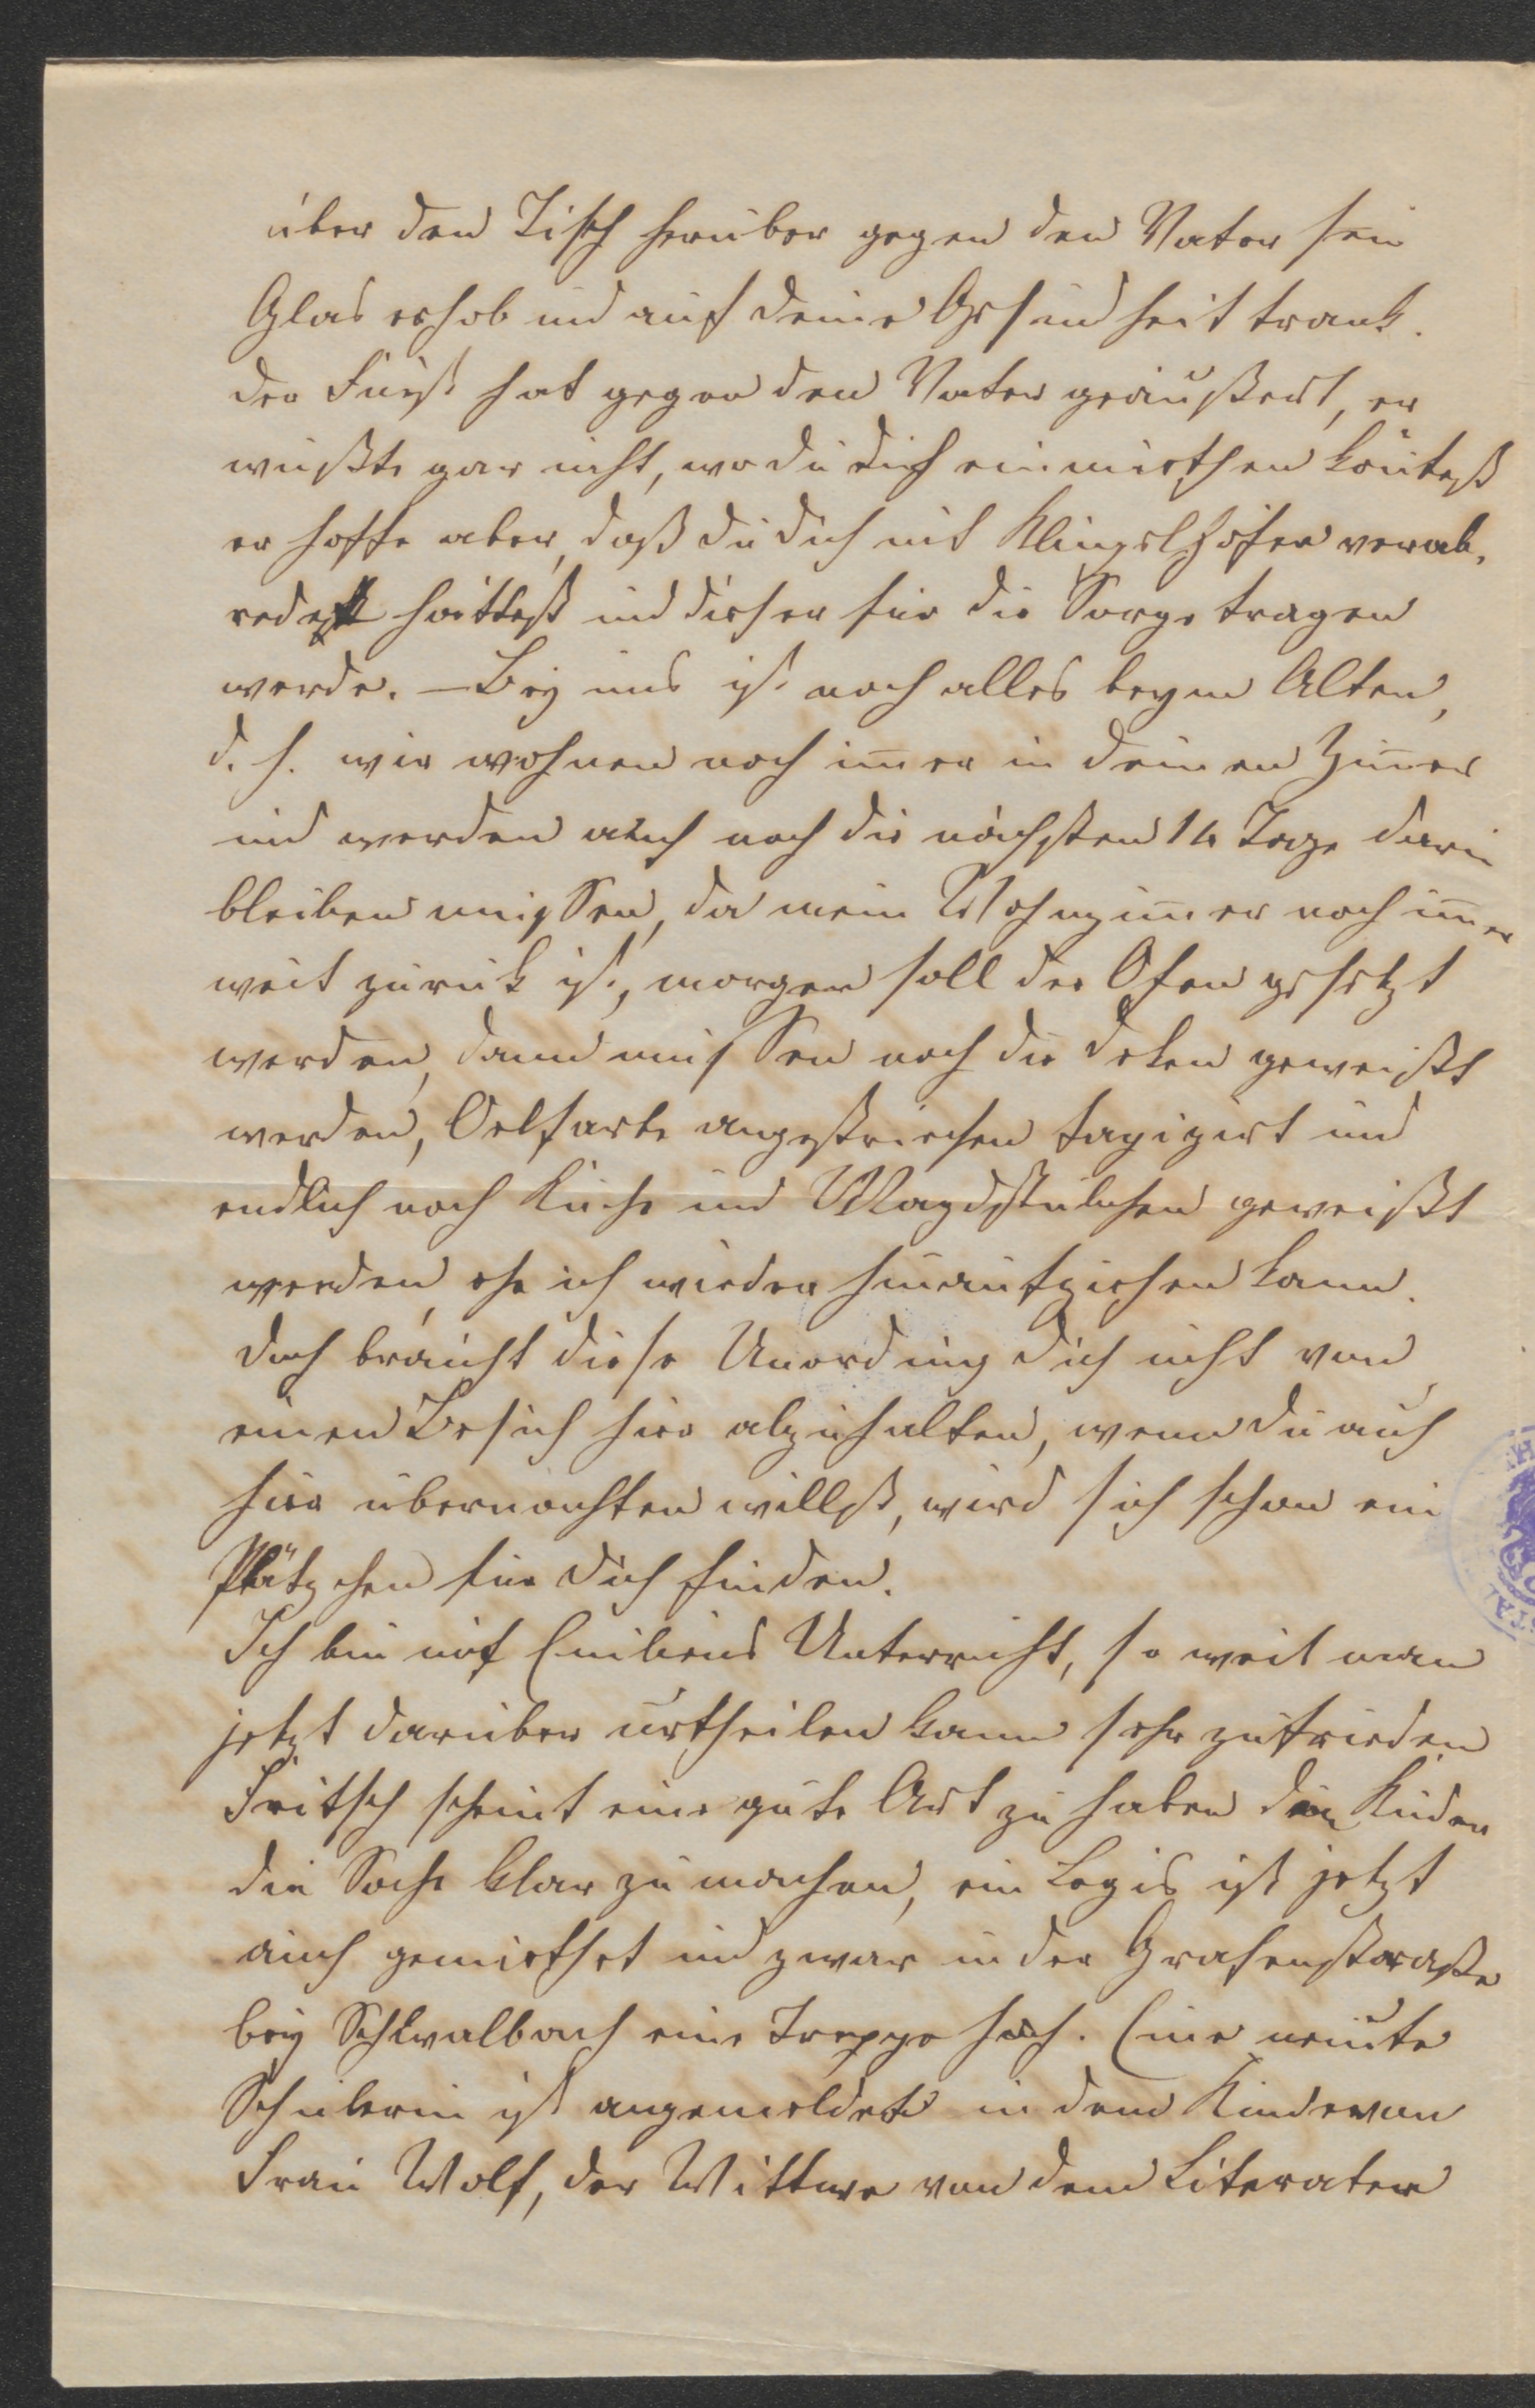 über den Tisch herüber gegen den Vater sein
Glas erhob und auf deine Gesundheit trank.
der Fürst hat gegen den Vater geäußert, er
wüßte gar nicht, wo du dich einmiethen könteßt
er hoffe aber, daß du dich mit Klingelhöfer verab,
redet hätteßt und dieser für die Sorge tragen
werde. – Bey uns ist noch alles beym Alten,
d. h. wir wohnen noch im̄er in deinen Zim̄er
und werden auch noch die nächsten 14 Tage darin
bleiben müssen, da mein Wohnzim̄er noch im̄er
weit zurük ist, morgen soll der Ofen gesetzt
werden, dann müssen noch die deken geweißt
werden, Oelfarbe angestriechen tapizirt und
endlich noch Küche und Magdstübchen geweißt
werden, ehe ich wieder hinaufziehen kann.
doch braucht diese Unordnung dich nicht von
einen Besuch hier abzuhalten, wenn du auch
hier übernachten willst, wird sich schon ein
Plätzchen für dich finden.
Ich bin mit Emiliens Unterricht, so weit man
jetzt darüber urtheilen kann sehr zufrieden
Fritsch scheint eine gute Art zu haben den Kinder
die Sache klar zu machen, ein Logis ist jetzt
auch gemiethet und zwar in der Grafenstraße
bey Schwalbach eine Treppe hoch. Eine neunte
Schülerin ist angemeldet in dem Kinde von
Frau Wolf, der Wittwe von dem Literaten